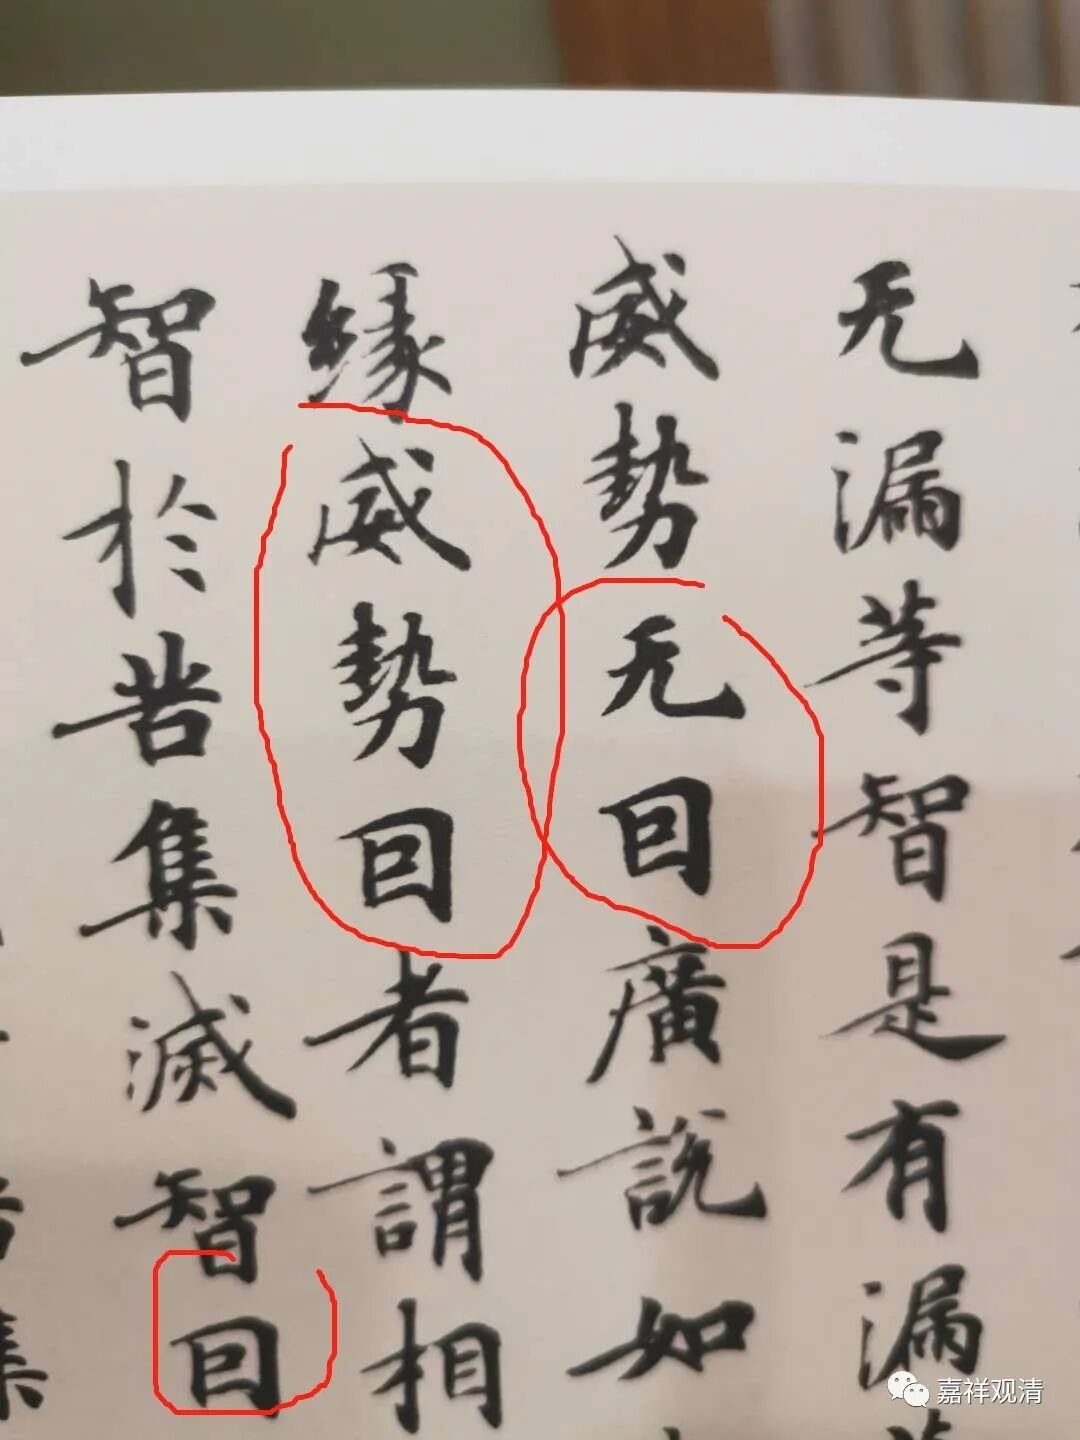 无漏等智是有漏
威勢无囙廣說如
緣威勢囙者謂相
智於苦集滅智囙
嘉祥观清